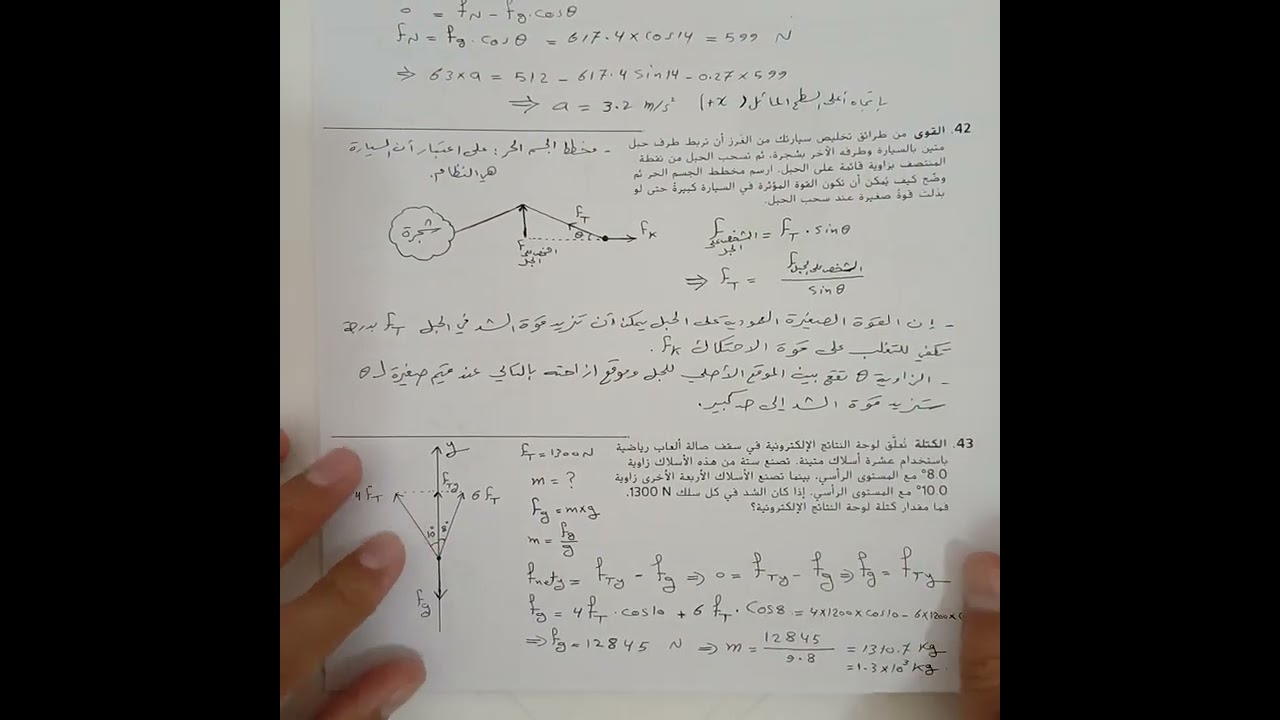 0 = fN − fg·cosθ
fN = fg·cosθ = 617.4×cos14 = 599 N
⇒ 63×a = 512 − 617.4 sin14 − 0.27×599
⇒ a = 3.2 m/s² (+x) باتجاه أعلى السطح المائل
42. القوى من طرائق تخليص سيارتك من الغرز أن تربط طرف حبل
متين بالسيارة وطرفه الآخر بشجرة، ثم تسحب الحبل من نقطة
المنتصف بزاوية قائمة على الحبل. ارسم مخطط الجسم الحر ثم
وضح كيف يُمكن أن تكون القوة المؤثرة في السيارة كبيرةً حتى لو
بذلت قوةً صغيرة عند سحب الحبل.
- مخطط الجسم الحر: على اعتبار أن السيارة
هي النظام.
شجرة
fT
θ
fK
f الشخص على الحبل
f الشخص على الحبل = fT · sinθ
⇒ fT = f الشخص على الحبل / sinθ
- إن القوة الصغيرة العمودية على الحبل يمكن أن تزيد قوة الشد في الحبل fT بدرجة
تكفي للتغلب على قوة الاحتكاك fK.
- الزاوية θ تقع بين الموقع الأصلي للحبل وموقع إزاحته بالتالي عند قيم صغيرة لـ θ
ستزيد قوة الشد إلى حد كبير.
43. الكتلة تُعلَّق لوحة النتائج الإلكترونية في سقف صالة ألعاب رياضية
باستخدام عشرة أسلاك متينة. تصنع ستة من هذه الأسلاك زاوية
8.0° مع المستوى الرأسي، بينما تصنع الأسلاك الأربعة الأخرى زاوية
10.0° مع المستوى الرأسي. إذا كان الشد في كل سلك 1300 N،
فما مقدار كتلة لوحة النتائج الإلكترونية؟
y
fTy
4 fT
6 fT
10° 8°
fg
fT = 1300 N
m = ?
fg = m×g
m = fg/g
fnety = fTy − fg ⇒ 0 = fTy − fg ⇒ fg = fTy
fg = 4 fT · cos10 + 6 fT · cos8 = 4×1200×cos10 − 6×1200×c
⇒ fg = 12845 N ⇒ m = 12845/9.8 = 1310.7 Kg
= 1.3×10³ Kg